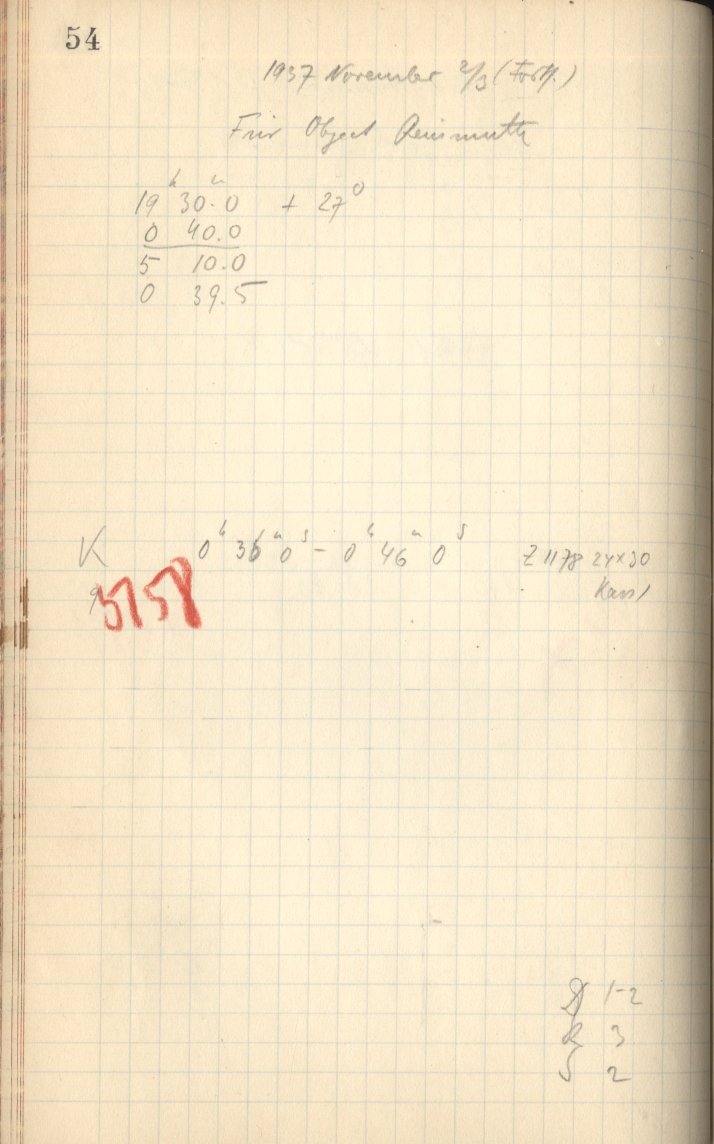 54
1937 November 2/3 (Forts.)
Für Object Reinmuth
19ʰ 30.0ᵐ + 27⁰
0 40.0
5 10.0
0 39.5
K 0ʰ 36ᵐ 0ˢ – 0ʰ 46ᵐ 0ˢ Z 1178 24×30
5758
1-2
R 3
S 2